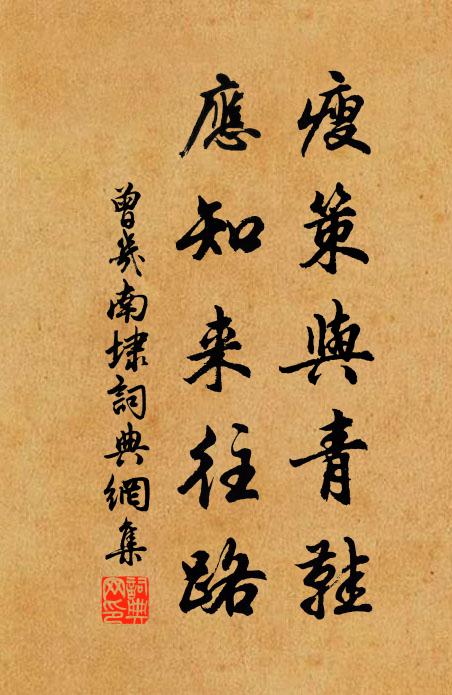 瘦策與青鞋
應知来往路
曾幾南埭詞典網集
詞典
网印